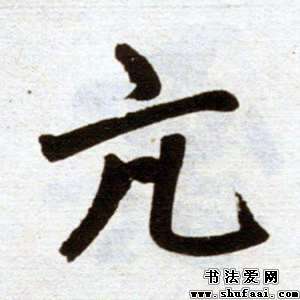 亢
书法爱网
www.shufaai.com